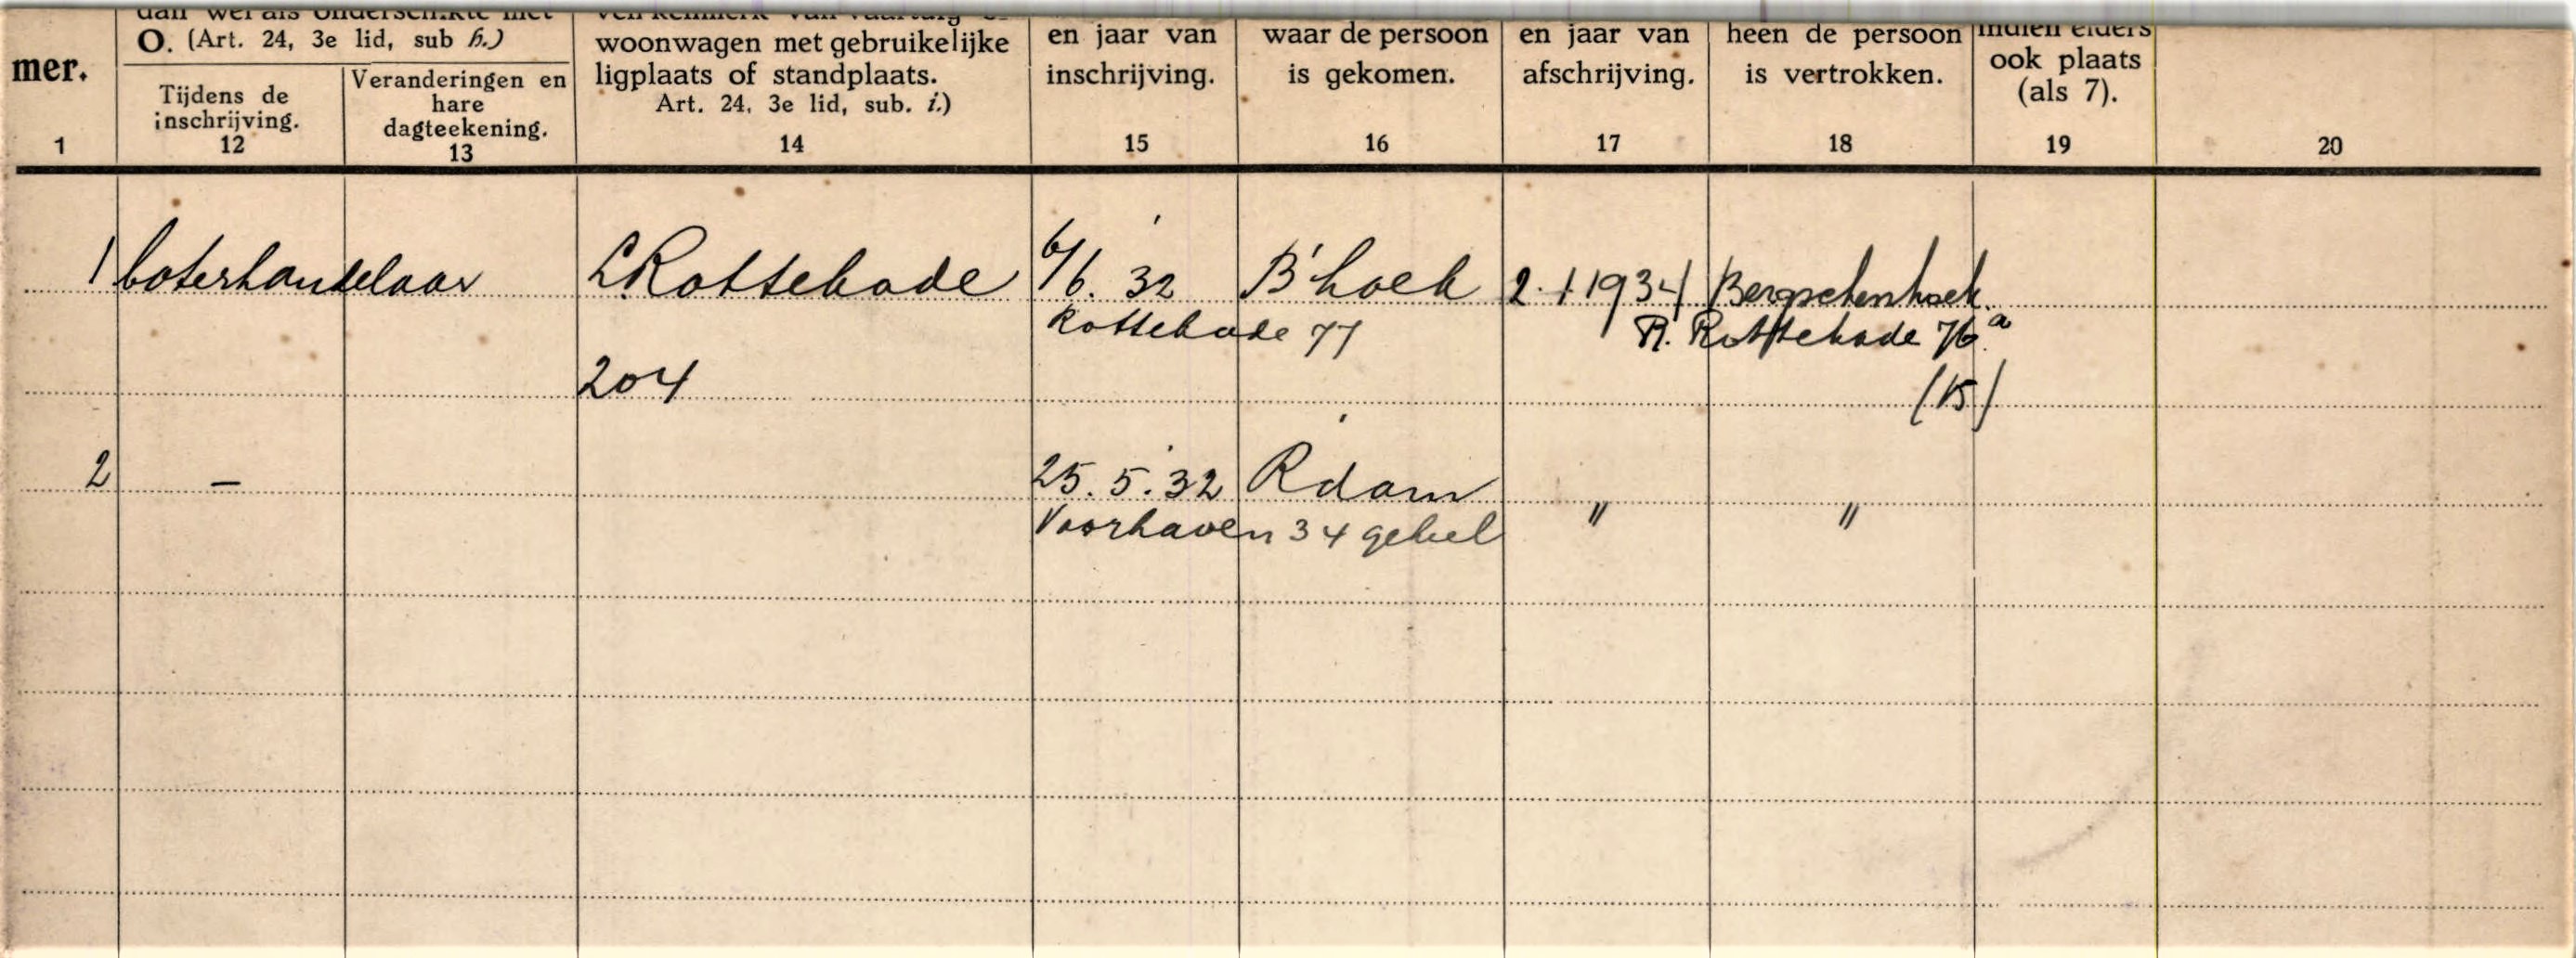 O. (Art. 24, 3e lid, sub h.)
mer.
Tijdens de
inschrijving.
Veranderingen en
hare
dagteekening.
woonwagen met gebruikelijke
ligplaats of standplaats.
Art. 24, 3e lid, sub. i.)
en jaar van
inschrijving.
waar de persoon
is gekomen.
en jaar van
afschrijving.
heen de persoon
is vertrokken.
indien elders
ook plaats
(als 7).
1 12 13 14 15 16 17 18 19 20
1 boterhandelaar L. Rottekade 6/6. 32 B'hoek 2.1 1934 Bergschenhoek.
Rottekade 77 R. Rottekade 76a
204 (15)
2 — 25.5.32 Rdam
Voorhaven 34 geheel " "